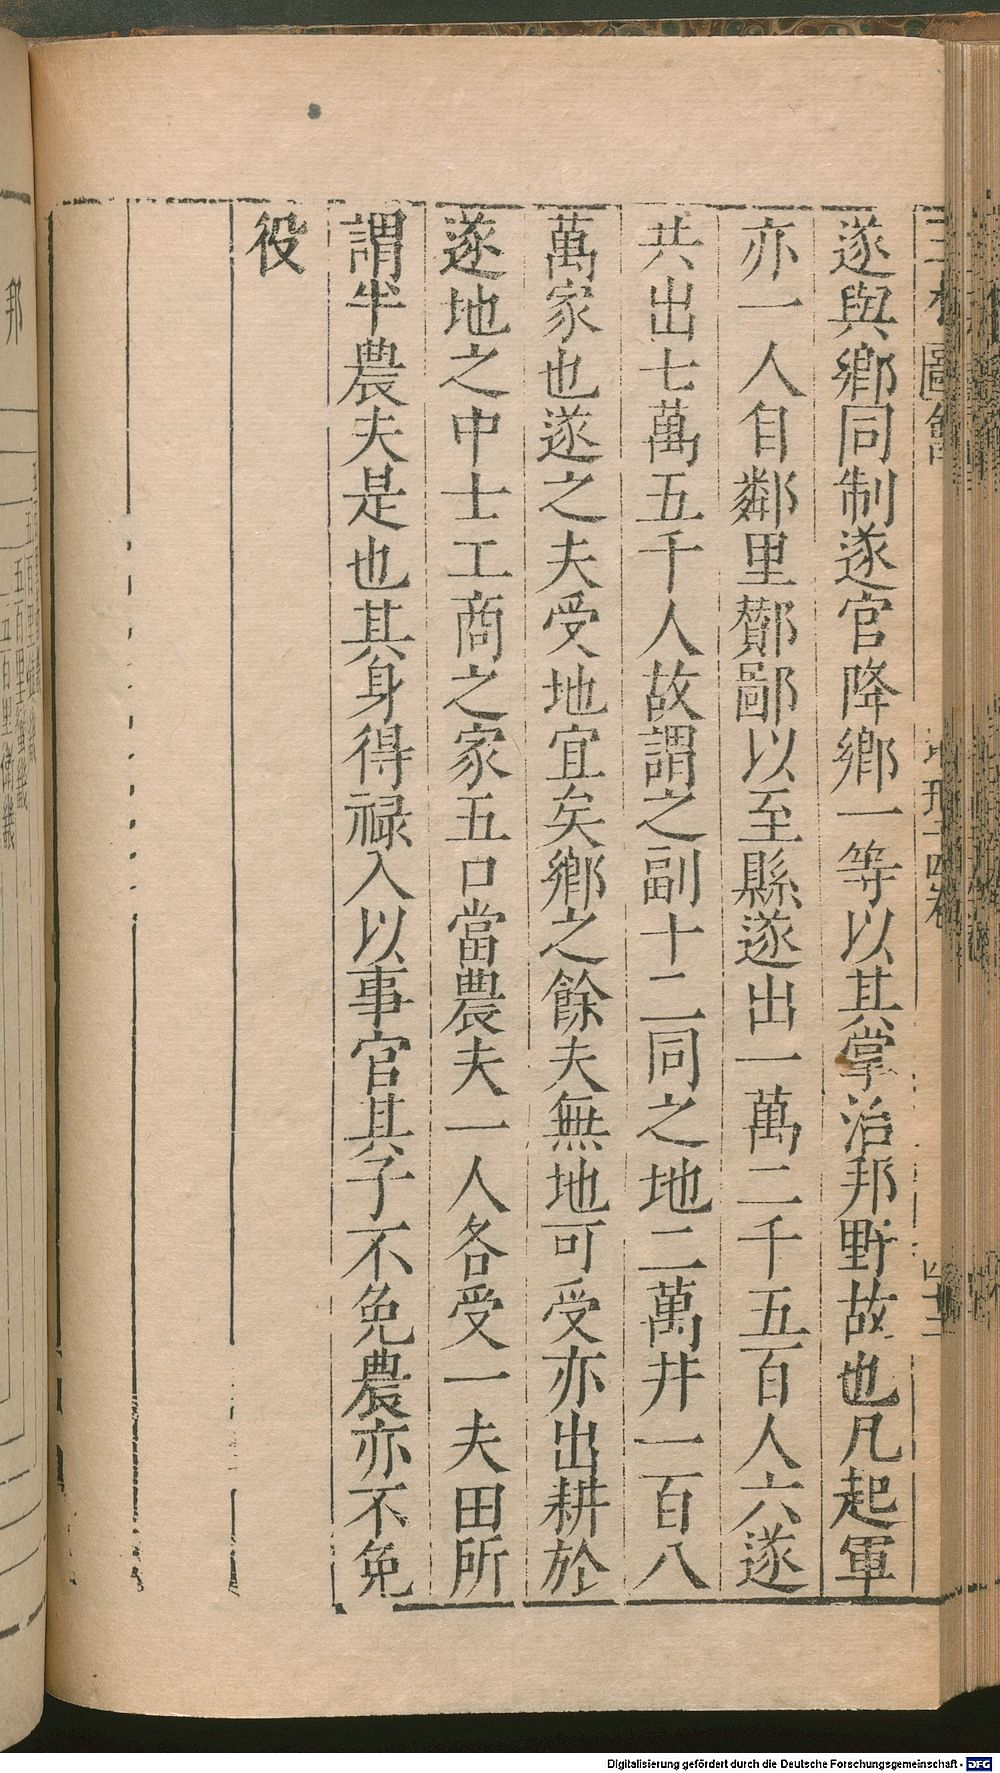 遂與鄉同制遂官降鄉一等以其掌治邦野故也凡起軍
亦一人自鄰里酇鄙以至縣遂出一萬二千五百人六遂
共出七萬五千人故謂之副十二同之地二萬井一百八
萬家也遂之夫受地宜矣鄉之餘夫無地可受亦出耕於
遂地之中士工商之家五口當農夫一人各受一夫田所
謂半農夫是也其身得祿入以事官其子不免農亦不免
役
邦
五百里蠻畿
五百里衛畿
Digitalisierung gefördert durch die Deutsche Forschungsgemeinschaft - DFG